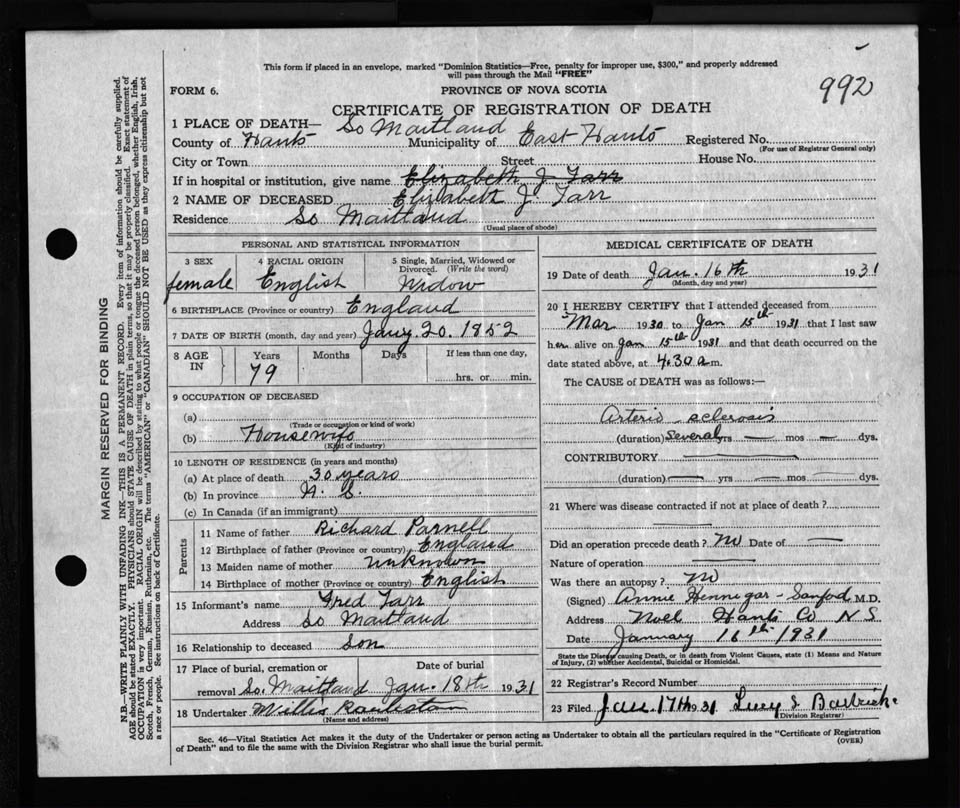 This form if placed in an envelope, marked "Dominion Statistics—Free, penalty for improper use, $300," and properly addressed
will pass through the Mail "FREE"
992
FORM 6.
PROVINCE OF NOVA SCOTIA
CERTIFICATE OF REGISTRATION OF DEATH
1 PLACE OF DEATH— So Maitland
County of Hants Municipality of East Hants Registered No.
(For use of Registrar General only)
City or Town Street House No.
If in hospital or institution, give name Elizabeth J Tarr
2 NAME OF DECEASED Elizabeth J. Tarr
Residence So Maitland
(Usual place of abode)
PERSONAL AND STATISTICAL INFORMATION
3 SEX 4 RACIAL ORIGIN 5 Single, Married, Widowed or
Divorced. (Write the word)
female English Widow
6 BIRTHPLACE (Province or country) England
7 DATE OF BIRTH (month, day and year) Jany 20. 1852
8 AGE IN Years Months Days If less than one day,
79 hrs. or min.
9 OCCUPATION OF DECEASED
(a)
(Trade or occupation or kind of work)
(b) Housewife
(Kind of industry)
10 LENGTH OF RESIDENCE (in years and months)
(a) At place of death 30 years
(b) In province N. S.
(c) In Canada (if an immigrant)
Parents
11 Name of father Richard Parnell
12 Birthplace of father (Province or country) England
13 Maiden name of mother Unknown
14 Birthplace of mother (Province or country) English
15 Informant's name Fred Tarr
Address So Maitland
16 Relationship to deceased Son
17 Place of burial, cremation or Date of burial
removal So. Maitland Jan. 18th 1931
18 Undertaker Willis
(Name and address)
MEDICAL CERTIFICATE OF DEATH
19 Date of death Jan. 16th 1931
(Month, day and year)
20 I HEREBY CERTIFY that I attended deceased from
Mar 1930 to Jan 15th 1931 that I last saw
her alive on Jan 15th 1931 and that death occurred on the
date stated above, at 4.30 a m.
The CAUSE of DEATH was as follows:—
Arterio sclerosis
(duration) Several yrs — mos — dys.
CONTRIBUTORY —
(duration) — yrs — mos — dys.
21 Where was disease contracted if not at place of death?
—
Did an operation precede death? No Date of —
Nature of operation —
Was there an autopsy? No
(Signed) Annie Hennigar-Sanford M.D.
Address Noel Hants Co N S
Date January 16th 1931
State the Disease causing Death, or in death from Violent Causes, state (1) Means and Nature
of Injury, (2) whether Accidental, Suicidal or Homicidal.
22 Registrar's Record Number
23 Filed Jan. 17th 1931 Lucy S
Division Registrar)
Sec. 46—Vital Statistics Act makes it the duty of the Undertaker or person acting as Undertaker to obtain all the particulars required in the "Certificate of Registration
of Death" and to file the same with the Division Registrar who shall issue the burial permit.
(OVER)
MARGIN RESERVED FOR BINDING
N.B.—WRITE PLAINLY WITH UNFADING INK—THIS IS A PERMANENT RECORD. Every item of information should be carefully supplied.
AGE should be stated EXACTLY. PHYSICIANS should STATE CAUSE OF DEATH in plain terms, so that it may be properly classified. Exact statement of
OCCUPATION is very important. RACIAL ORIGIN will be described by stating to what people or tongue the deceased person belonged, whether English, Irish,
Scotch, French, German, Russian, Ruthenian, etc. The terms "AMERICAN" or "CANADIAN" SHOULD NOT BE USED as they express citizenship but not
a race or people. See instructions on back of Certificate.